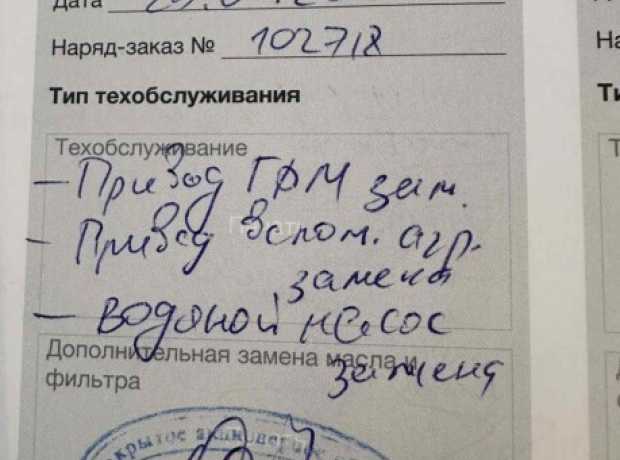 Дата
Наряд-заказ № 102718
Тип техобслуживания
Техобслуживание
– Привод ГРМ зам.
– Привод вспом. агр.
замена
– водяной насос
замена
Дополнительная замена масла и
фильтра
крытое акционерное